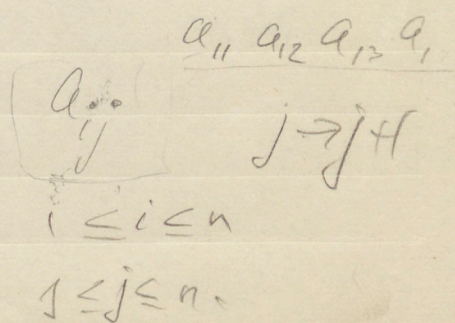 a₁₁ a₁₂ a₁₃ a₁
aᵢⱼ
j → j+1
1 ≤ i ≤ n
1 ≤ j ≤ n.